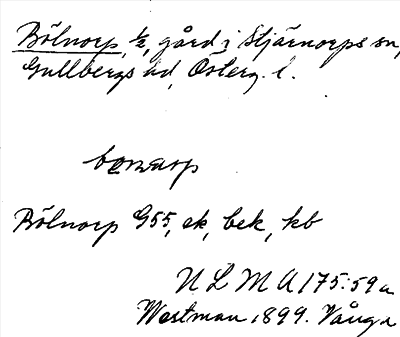 Bölnorp, 1/2, gård i Stjärnorps sn,
Gullbergs hd, Österg. l.
Bölnorp G55, ek, bek, kb
ULMA 175:59a
Westman 1899. Vånga